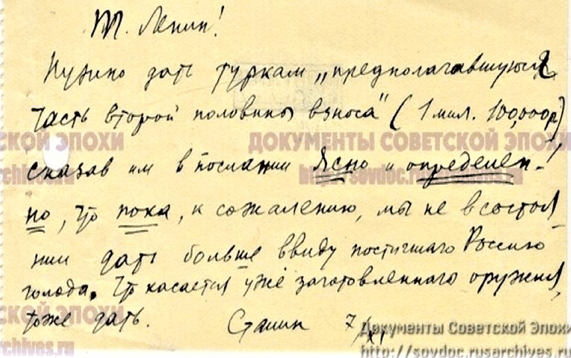 Т. Ленин!
Нужно дать туркам „предполагавшуюся
часть второй половины взноса“ (1 мил. 100,000 р.)
ДОКУМЕНТЫ СОВЕТСКОЙ ЭПОХИ
сказав им в послании ясно и определен-
http://sovdoc.rusarchives.ru
но, что пока, к сожалению, мы не в состоя
нии дать больше ввиду постигшего Россию
голода. Что касается уже заготовленного оружия,
тоже дать. Сталин 7/XI
Документы Советской Эпохи
http://sovdoc.rusarchives.ru